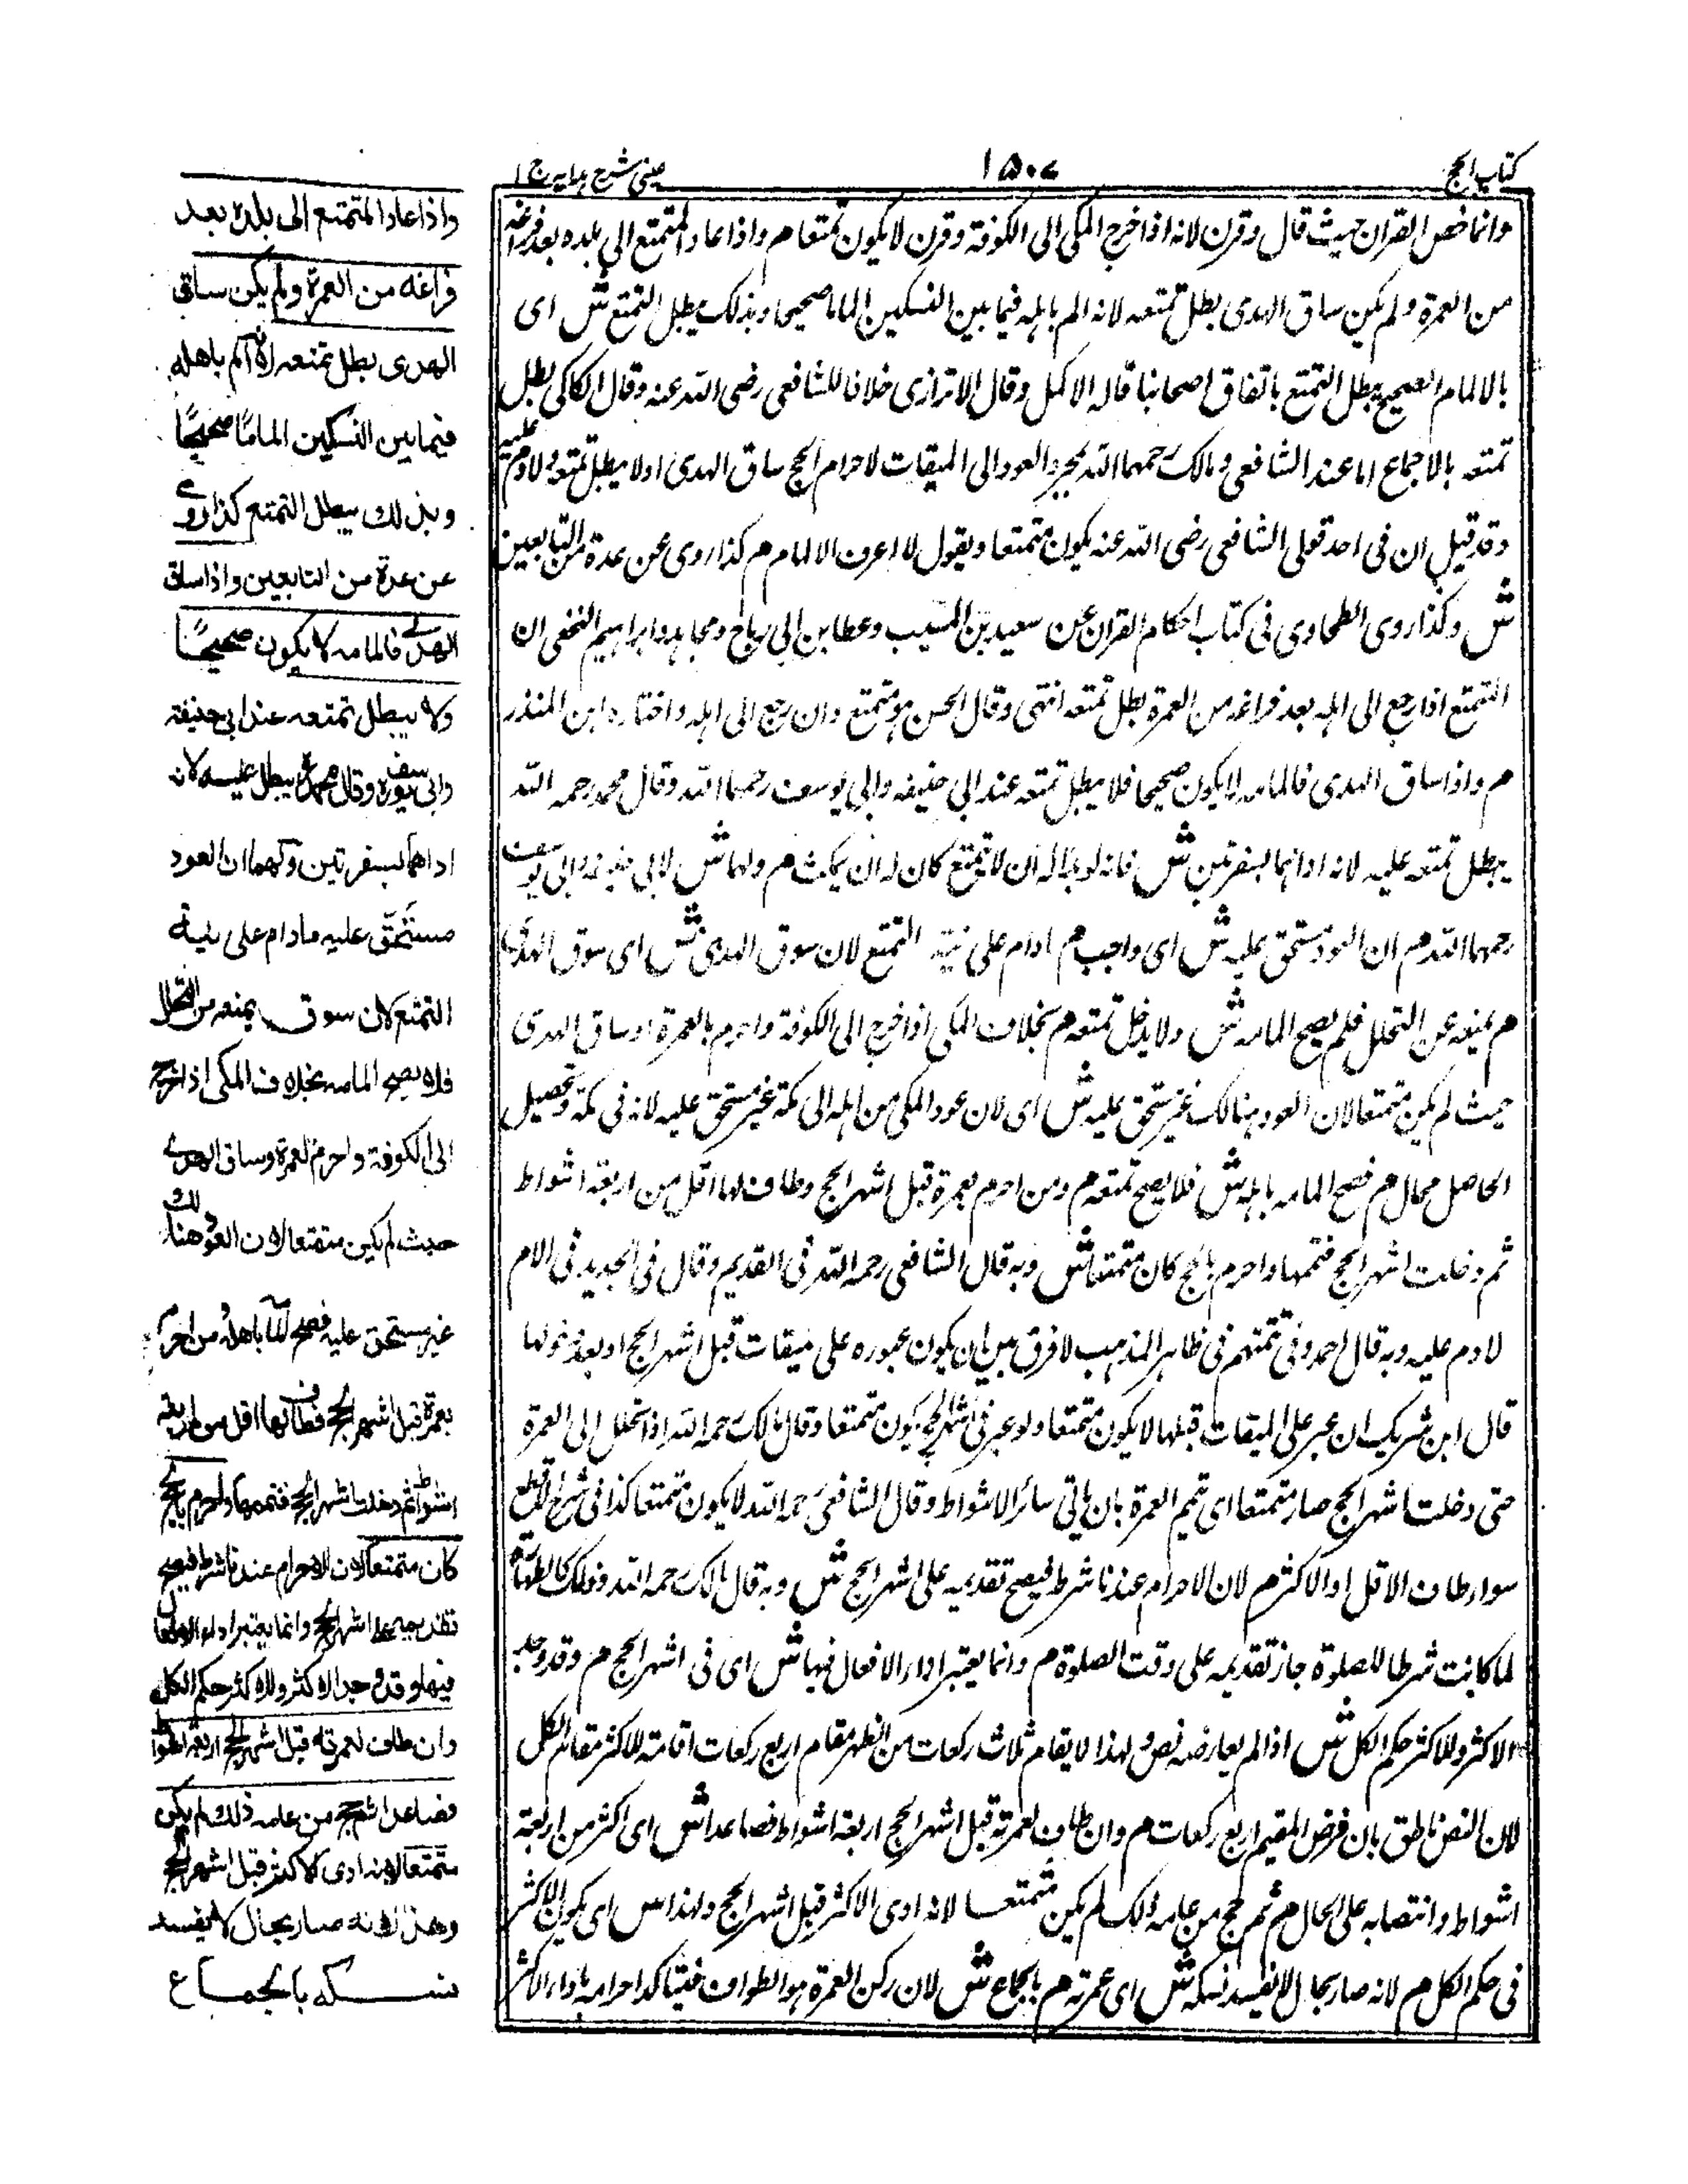 كتاب الحج
١٥٠٧
عينى شرح هدايه ج ١
وانما خص القران حيث قال وقرن لانه اذا خرج المكى الى الكوفة وقرن لا يكون متمتعا م واذا عاد المتمتع الى بلده بعد فراغه
من العمرة ولم يكن ساق الهدى بطل تمتعه لانه الم باهله فيما بين النسكين الماما صحيحا وبذلك يبطل التمتع ش اى
بالالمام الصحيح يبطل التمتع باتفاق اصحابنا قاله الاكمل وقال الاترازى خلافا للشافعى رضى الله عنه وقال الكاكى بطل
تمتعه بالاجماع اما عند الشافعى ومالك رحمهما الله بمجرد العود الى الميقات لاحرام الحج ساق الهدى اولا يبطل تمتعه ولا دم عليه
وقد قيل ان فى احد قولى الشافعى رضى الله عنه يكون متمتعا ويقول لا اعرف الالمام م كذا روى عن عدة من التابعين
ش وكذا روى الطحاوى فى كتاب احكام القران عن سعيد بن المسيب وعطا بن ابى رباح ومجاهد وابراهيم النخعى ان
المتمتع اذا رجع الى اهله بعد فراغه من العمرة بطل تمتعه انتهى وقال الحسن هو متمتع وان رجع الى اهله واختاره ابن المنذر
م واذا ساق الهدى فالمامه لا يكون صحيحا فلا يبطل تمتعه عند ابى حنيفه وابى يوسف رحمهما الله وقال محمد رحمه الله
يبطل تمتعه عليه لانه اداهما بسفرتين ش فانه لو بدا له ان لا يتمتع كان له ان يمكث م ولهما ش لابى حنيفه وابى يوسف
رحمهما الله م ان العود مستحق عليه ش اى واجب م ما دام على نية التمتع لان سوق الهدى ش اى سوق الهدى
م يمنعه عن التحلل فلم يصح المامه ش ولا يدخل تمتعه م بخلاف المكى اذا خرج الى الكوفة واحرم بالعمرة او ساق الهدى
حيث لم يكن متمتعا لان العود هنالك غير مستحق عليه ش اى لان عود المكى من اهله الى مكة غير مستحق عليه لانه فى مكة وتحصيل
الحاصل محال م فصح المامه باهله ش فلا يصح تمتعه م ومن احرم بعمرة قبل اشهر الحج وطاف لها اقل من اربعة اشواط
ثم دخلت اشهر الحج فتمها واحرم بالحج كان متمتعا ش وبه قال الشافعى رحمه الله فى القديم وقال فى الجديد فى الام
لا دم عليه وبه قال احمد وفى تتمتهم فى ظاهر المذهب لا فرق بين ان يكون عبوره على ميقات قبل اشهر الحج او بعد دخولها
قال ابن شريك ان عبر على الميقات قبلها لا يكون متمتعا ولو عبر فى اشهر الحج يكون متمتعا وقال مالك رحمه الله اذا تحلل الى العمرة
حتى دخلت اشهر الحج صار متمتعا اى تتميم العمرة بان ياتى سائر الاشواط وقال الشافعى رحمه الله لا يكون متمتعا كذا فى شرح
سواء طاف الاقل او الاكثر م لان الاحرام عندنا شرط فيصح تقديمه على اشهر الحج ش وبه قال مالك رحمه الله وذلك كالطهارة
لما كانت شرطا للصلوة جاز تقديمه على وقت الصلوة م وانما يعتبر اداء الافعال فيها ش اى فى اشهر الحج م وقد وجد
الاكثر وللاكثر حكم الكل ش اذا لم يعارضه نص ولهذا لا يقام ثلاث ركعات من الظهر مقام اربع ركعات اقامة للاكثر مقام الكل
لان النص ناطق بان فرض المقيم اربع ركعات م وان طاف لعمرته قبل اشهر الحج اربعة اشواط فصاعدا ش اى اكثر من اربعة
اشواط وانتصابه على الحال م ثم حج من عامه ذلك لم يكن متمتعا لانه ادى الاكثر قبل اشهر الحج ولهذا ش اى يكون الاكثر
فى حكم الكل م لانه صار بحال لا يفسد نسكه ش اى عمرته م بالجماع ش لان ركن العمرة هو الطواف فيتاكد احرامه باداء الاكثر
واذا عاد المتمتع الى بلده بعد
فراغه من العمرة ولم يكن ساق
الهدى بطل تمتعه لانه الم باهله
فيما بين النسكين الماما صحيحا
وبذلك يبطل التمتع كذا روى
عن عدة من التابعين واذا ساق
الهدى فالمامه لا يكون صحيحا
ولا يبطل تمتعه عند ابى حنيفة
وابى يوسف وقال محمد يبطل عليه لانه
اداهما بسفرتين ولهما ان العود
مستحق عليه مادام على نية
التمتع لان سوق يمنعه من التحلل
فلا يصح المامه بخلاف المكى اذا خرج
الى الكوفة واحرم لعمرة وساق الهدى
حيث لم يكن متمتعا لان العود هنالك
غير مستحق عليه فصح المامه باهله ومن احرم
بعمرة قبل اشهر الحج فطاف لها اقل من اربعة
اشواط ثم دخلت اشهر الحج فتممها واحرم بالحج
كان متمتعا لان الاحرام عندنا شرط فيصح
تقديمه على اشهر الحج وانما يعتبر اداء الافعال
فيها وقد وجد الاكثر وللاكثر حكم الكل
وان طاف لعمرته قبل اشهر الحج اربعة اشواط
فصاعدا ثم حج من عامه ذلك لم يكن
متمتعا لانه ادى الاكثر قبل اشهر الحج
وهذا لانه صار بحال لا يفسد
نسكه بالجماع